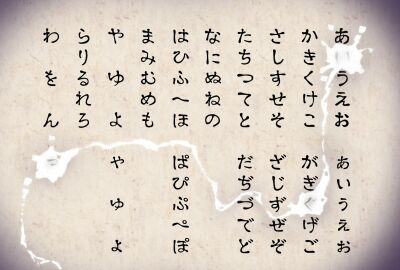 あいうえお
かきくけこ
さしすせそ
たちつてと
なにぬねの
はひふへほ
まみむめも
やゆよ
らりるれろ
わをん
ぁぃぅぇぉ
がぎぐげご
ざじずぜぞ
だぢづでど
ぱぴぷぺぽ
ゃゅょ